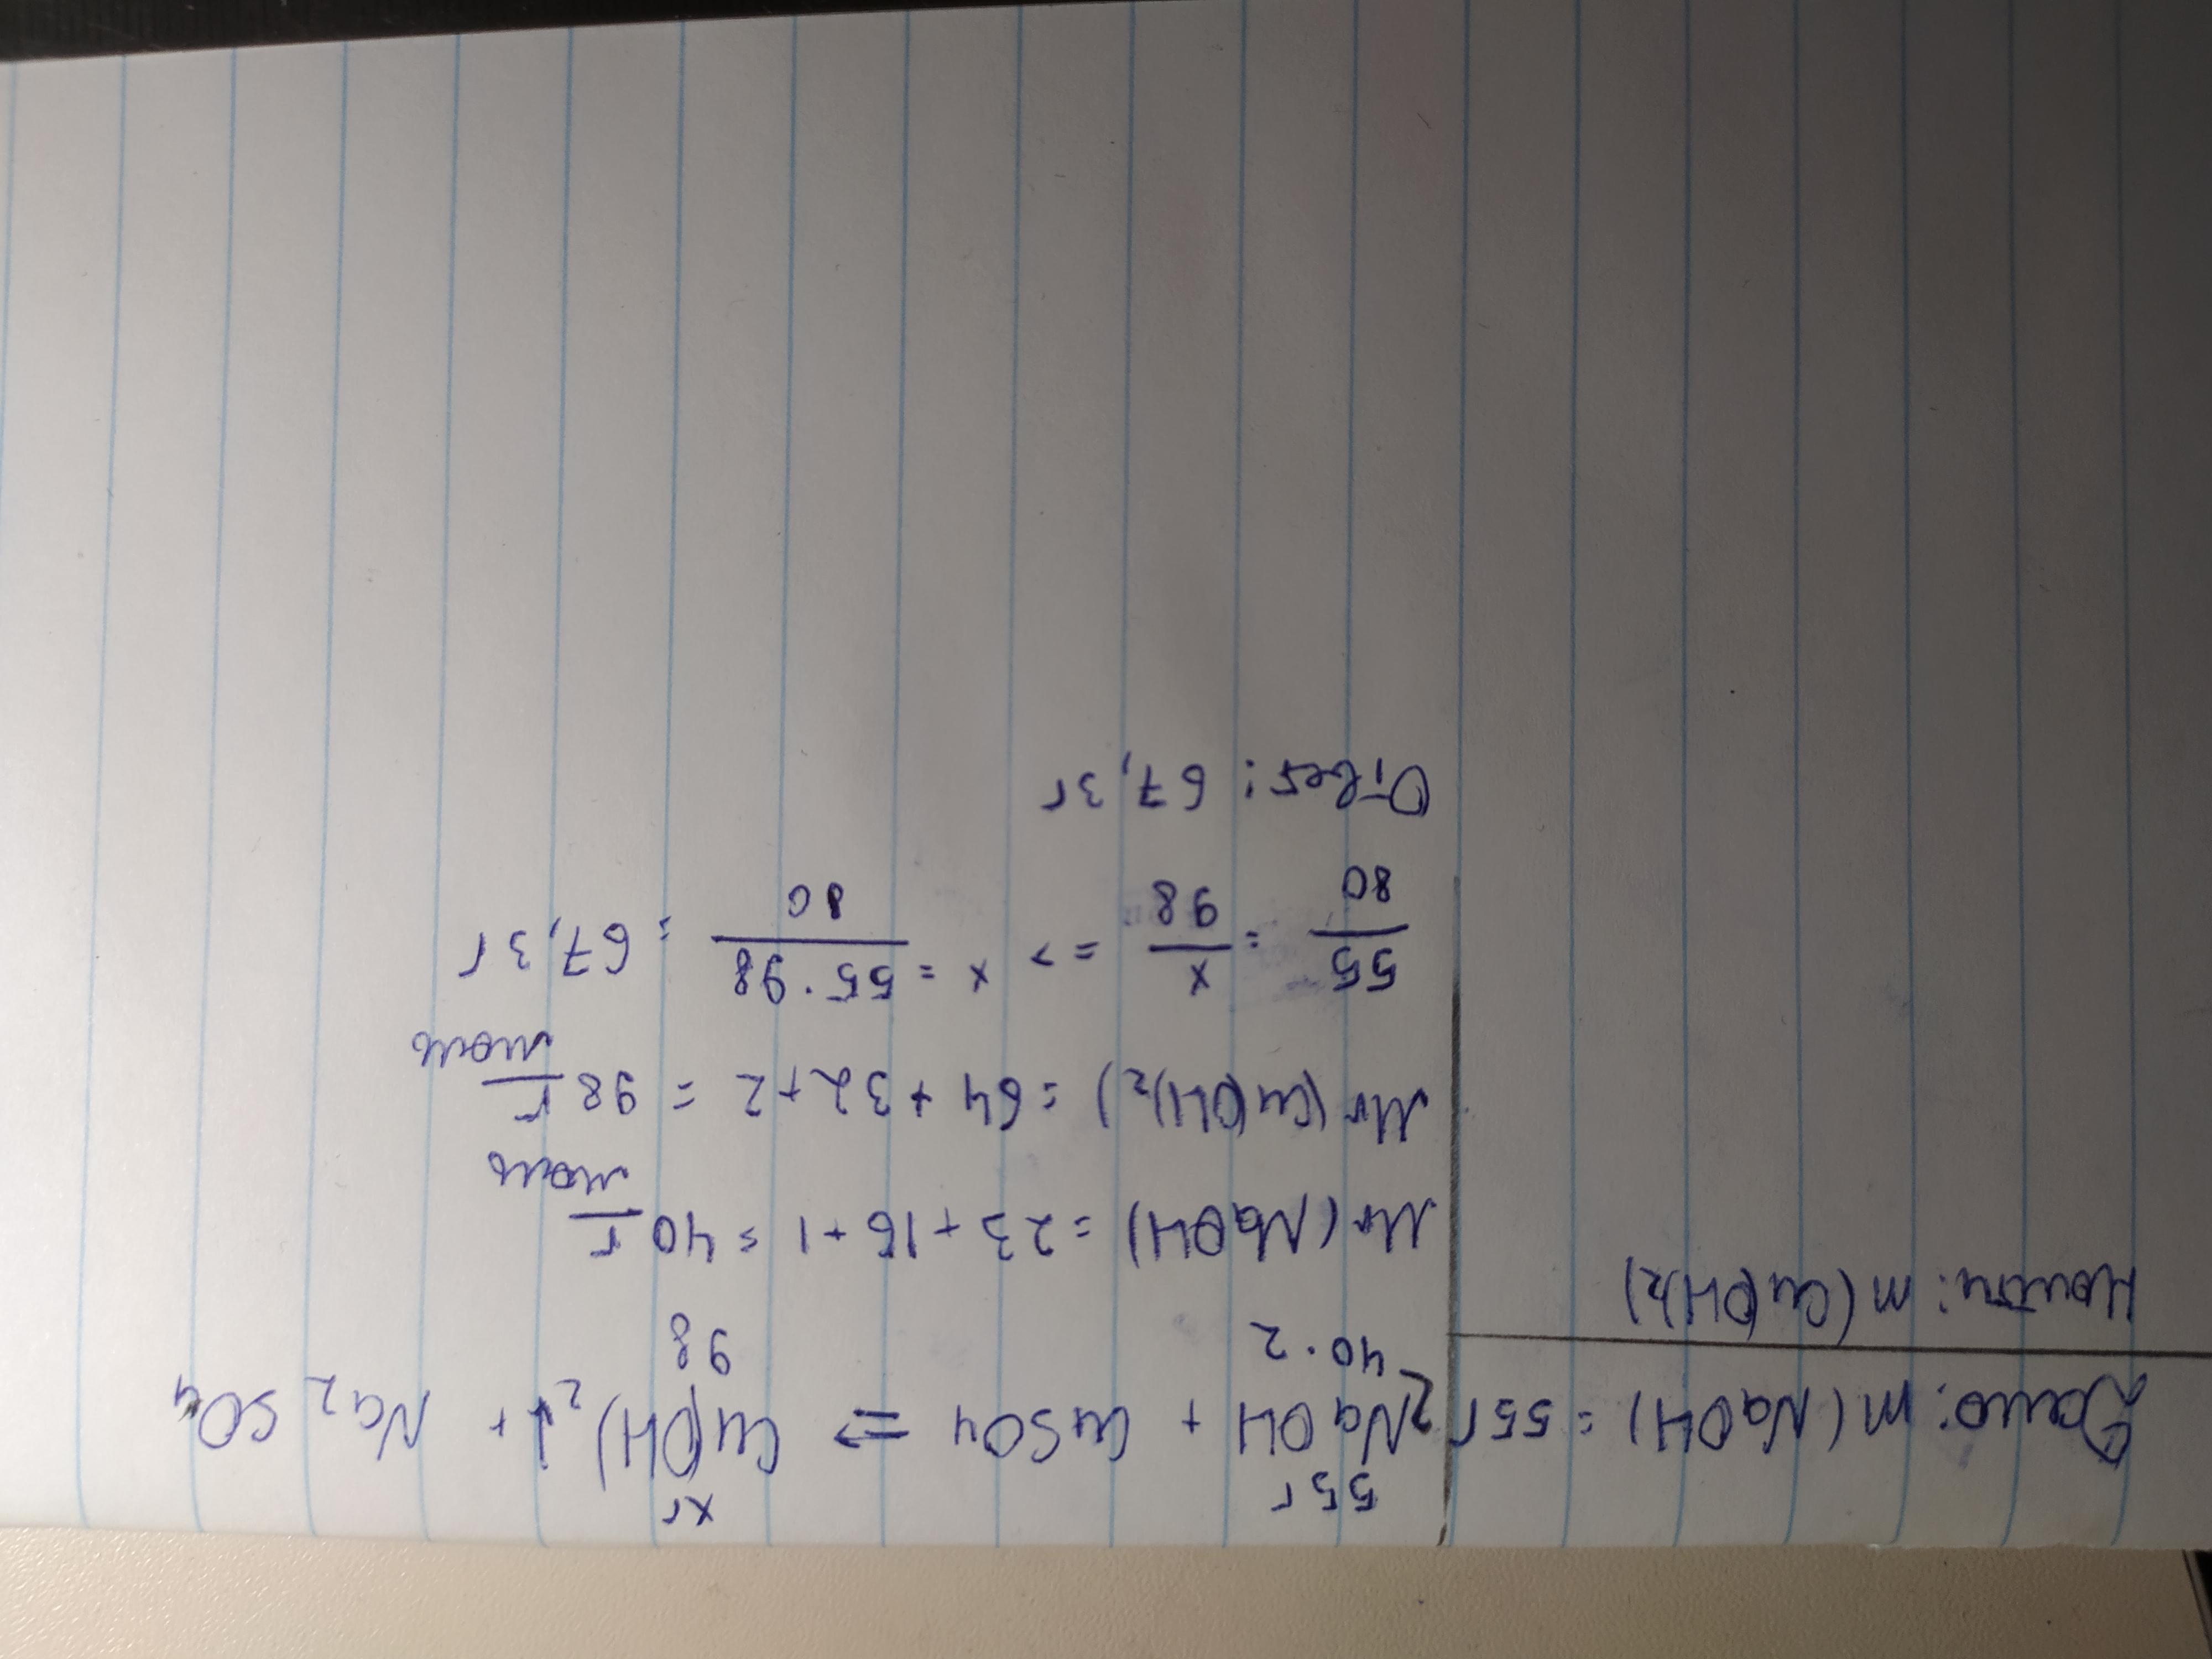 Дано: m(NaOH) = 55г
Найти: m(Cu(OH)2)
55г xг
2NaOH + CuSO4 => Cu(OH)2↓ + Na2SO4
40·2 98
Mr(NaOH) = 23+16+1 = 40 г/моль
Mr(Cu(OH)2) = 64+32+2 = 98 г/моль
55/80 = x/98 => x = 55·98/80 = 67,3г
Ответ: 67,3г